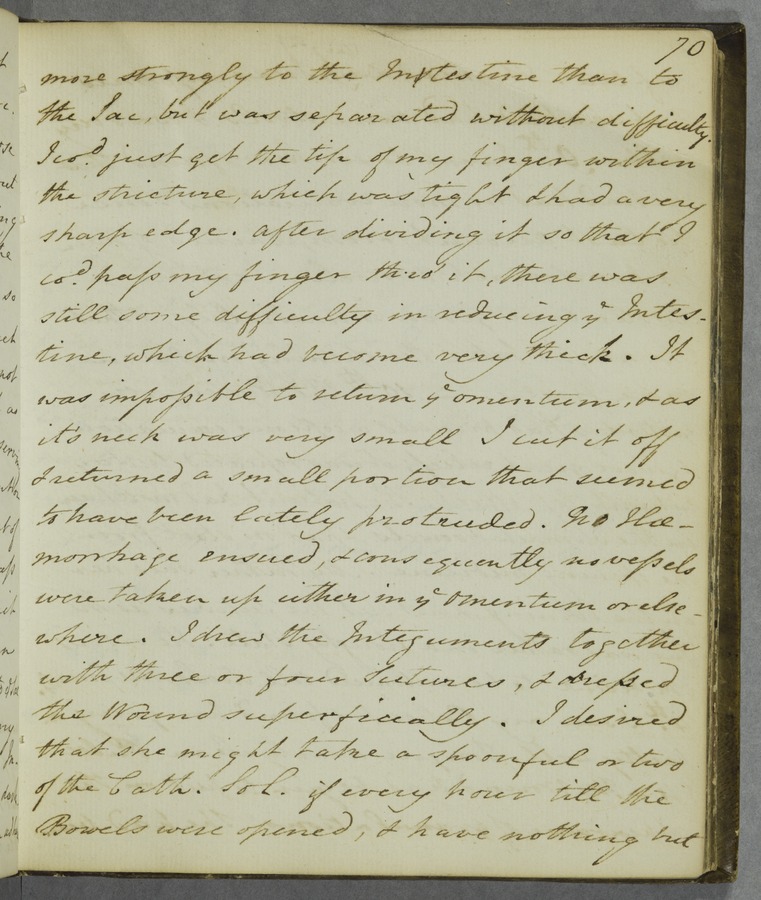 70
more strongly to the Intestine than to
the Sac, but was separated without difficulty.
I coḋ just get the tip of my finger within
the stricture, which was tight & had a very
sharp edge. after dividing it so that I
coḋ paſs my finger thro' it, there was
still some difficulty in reducing yͤ Intes-
tine, which had become very thick. It
was impoſsible to return yͤ omentum, & as
it's neck was very small I cut it off
& returned a small portion that seemed
to have been lately protruded. No Hæ-
morrhage ensued, & consequently no veſsels
were taken up either in yͤ Omentum or else-
where. I drew the Integuments together
with three or four Sutures, & dreſsed
the Wound superficially. I desired
that she might take a spoonful or two
of the Cath. Sol. every hour till the
Bowels were opened, & have nothing but